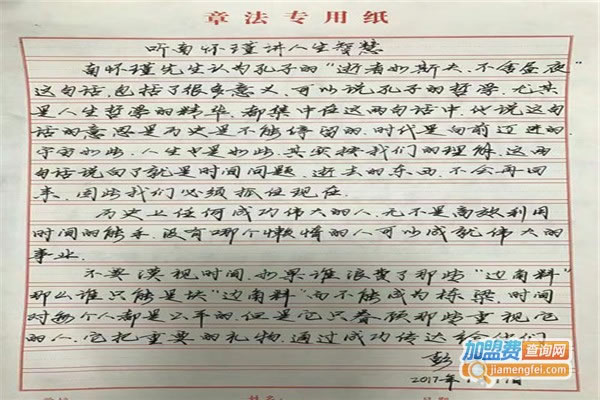 章法专用纸
听南怀瑾讲人生智慧
南怀瑾先生认为孔子的“逝者如斯夫,不舍昼夜”
这句话,包括了很多意义,可以说孔子的哲学,尤其
是人生哲学的精华,都集中在这两句话中,他说这句
话的意思是历史是不能停留的,时代是向前迈进的.
宇宙如此,人生也是如此.其实按我们的理解,这两
句话说白了就是时间问题,逝去的东西,不会再回
来,因此我们必须抓住现在.
历史上任何成功伟大的人,无不是高效利用
时间的能手,没有哪个懒惰的人可以成就伟大的
事业.
不要漠视时间,如果谁浪费了那些“边角料”
那么谁只能是块“边角料”而不能成为栋梁,时间
对每个人都是公平的,但是它只眷顾那些重视它
的人,它把重要的礼物,通过成功传达给他们
彭
2017年
加盟费查询网
jiamengfei.com